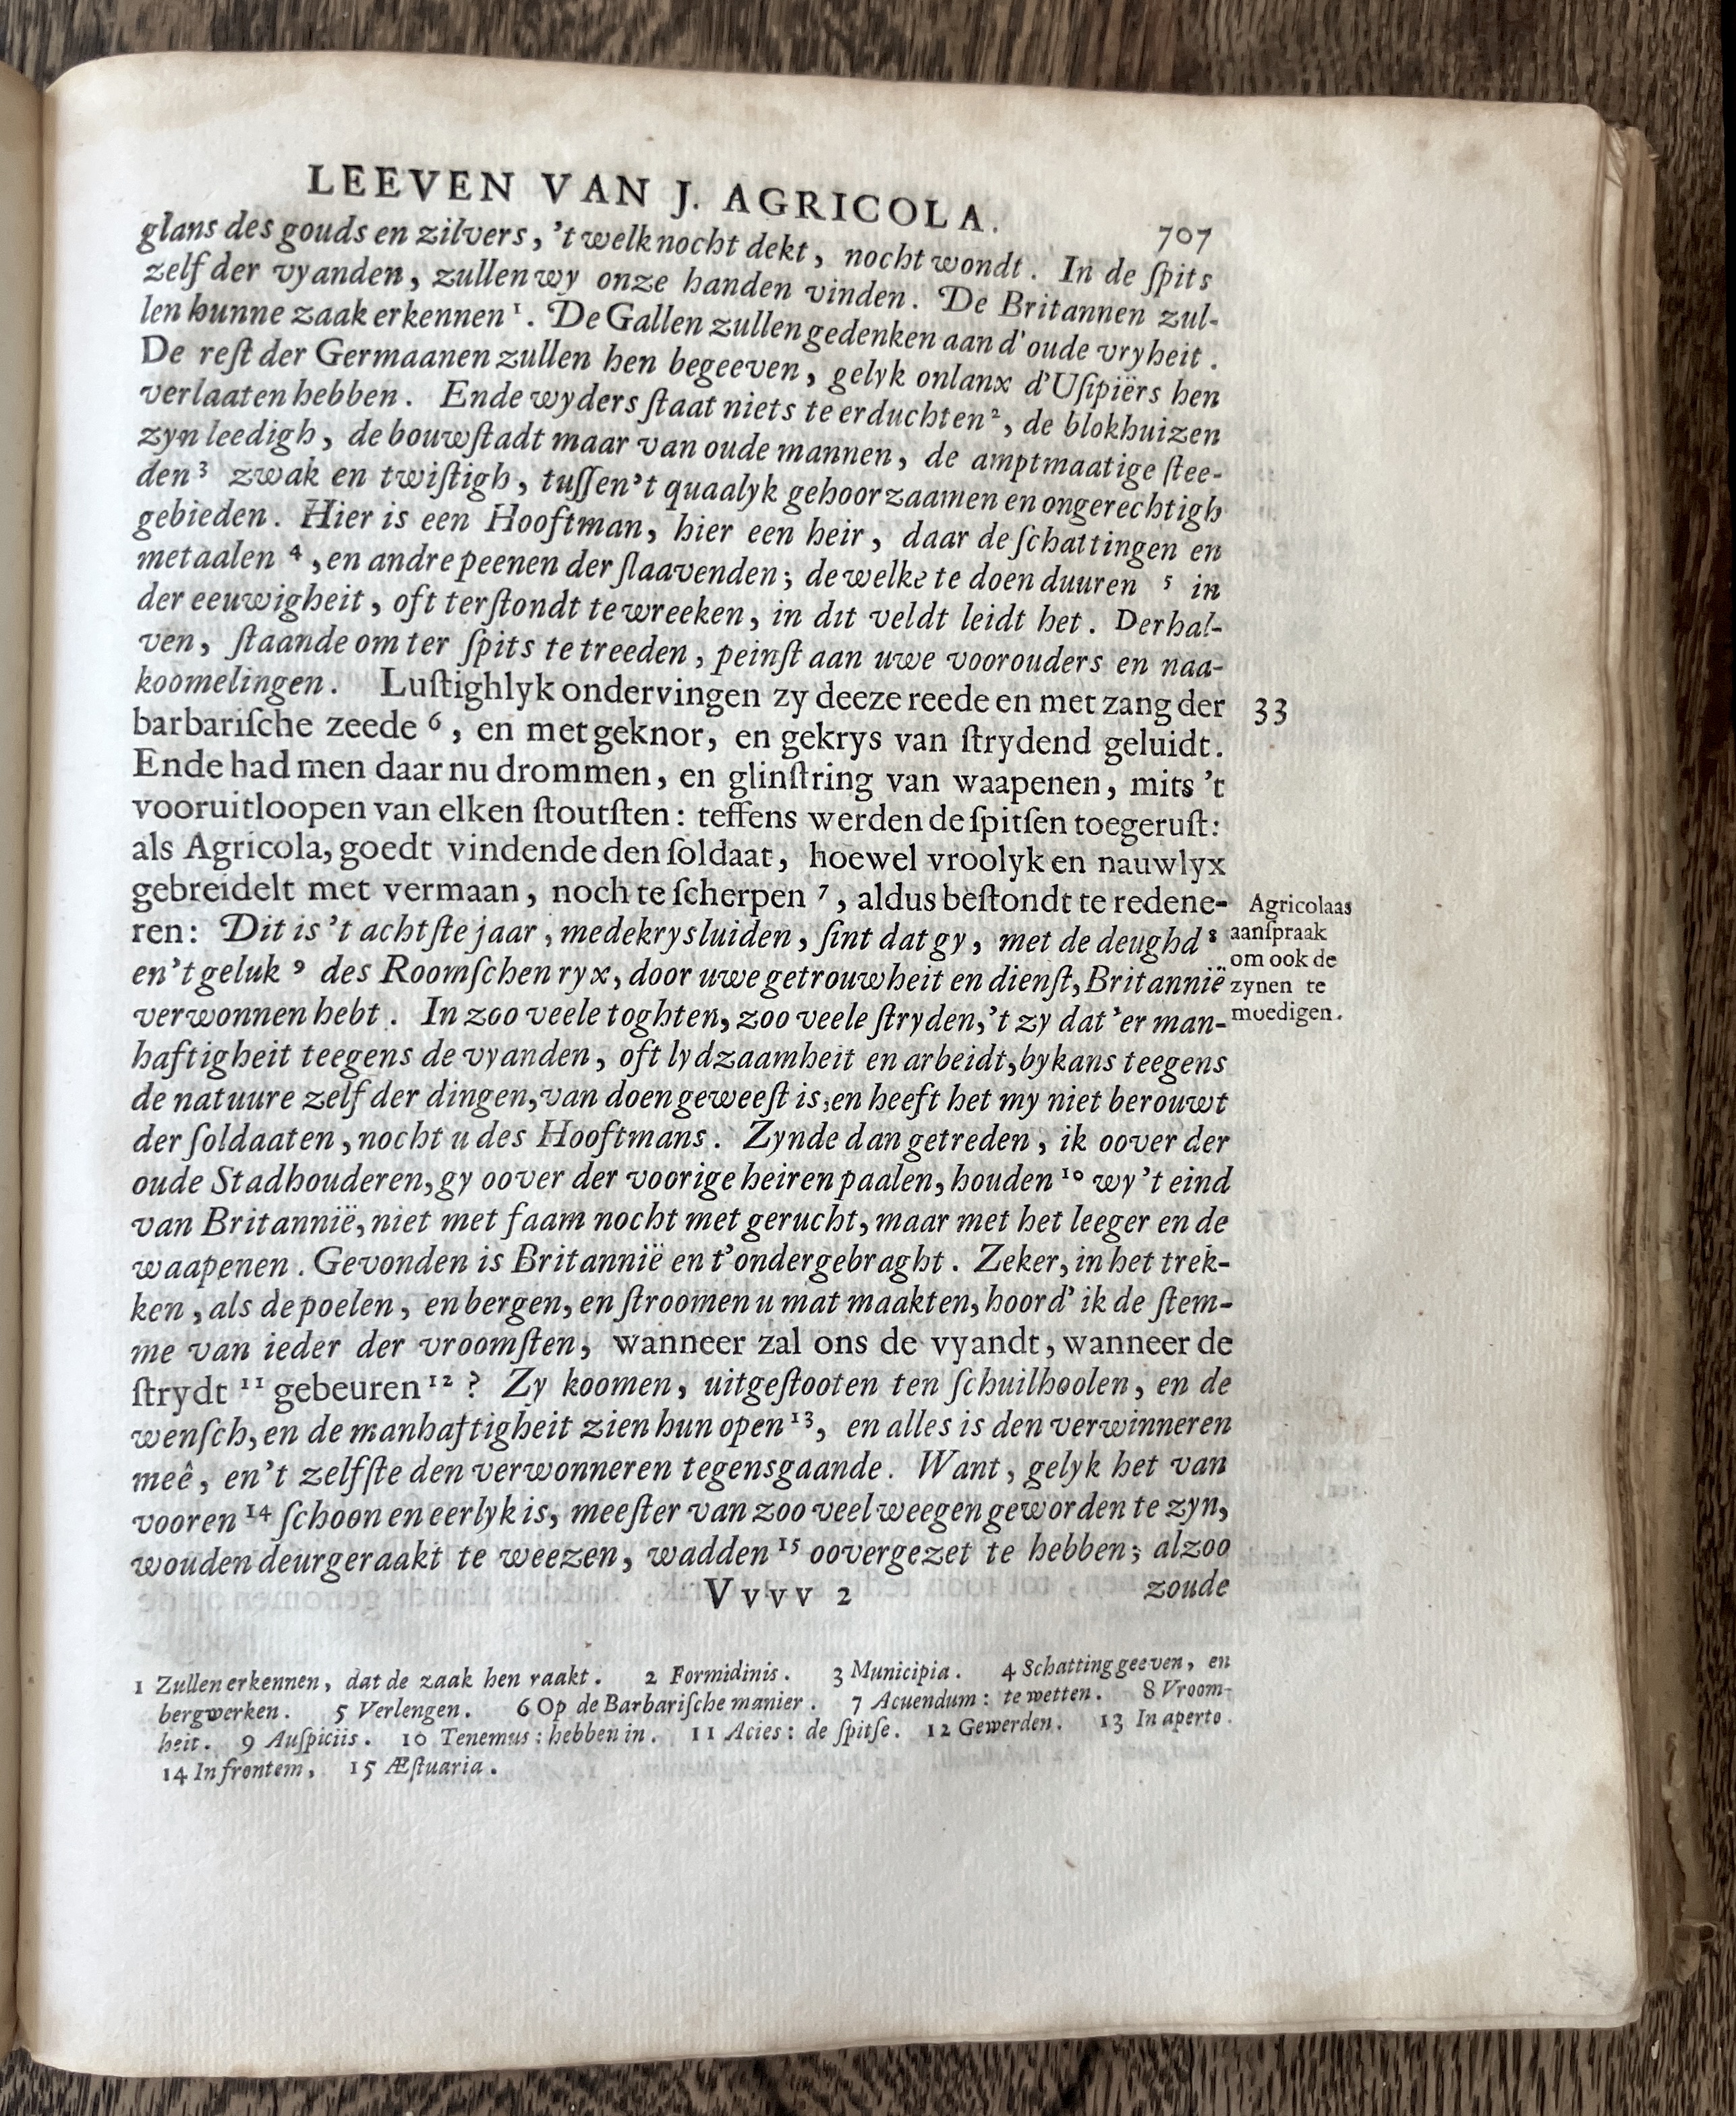 LEEVEN VAN J. AGRICOLA.
707
glans des gouds en zilvers, 't welk nocht dekt, nocht wondt. In de ſpits
zelf der vyanden, zullen wy onze handen vinden. De Britannen zul-
len hunne zaak erkennen ¹. De Gallen zullen gedenken aan d'oude vryheit.
De reſt der Germaanen zullen hen begeeven, gelyk onlanx d'Uſipiërs hen
verlaaten hebben. Ende wyders ſtaat niets te erduchten ², de blokhuizen
zyn leedigh, de bouwſtadt maar van oude mannen, de amptmaatige ſtee-
den ³ zwak en twiſtigh, tuſſen't quaalyk gehoorzaamen en ongerechtigh
gebieden. Hier is een Hooftman, hier een heir, daar de ſchattingen en
metaalen ⁴, en andre peenen der ſlaavenden; de welke te doen duuren ⁵ in
der eeuwigheit, oft terſtondt te wreeken, in dit veldt leidt het. Derhal-
ven, ſtaande om ter ſpits te treeden, peinſt aan uwe voorouders en naa-
koomelingen. Luſtighlyk ondervingen zy deeze reede en met zang der
33
barbariſche zeede ⁶, en met geknor, en gekrys van ſtrydend geluidt.
Ende had men daar nu drommen, en glinſtring van waapenen, mits 't
vooruitloopen van elken ſtoutſten: teffens werden de ſpitſen toegeruſt:
als Agricola, goedt vindende den ſoldaat, hoewel vroolyk en nauwlyx
gebreidelt met vermaan, noch te ſcherpen ⁷, aldus beſtondt te redene-
ren: Dit is 't achtſte jaar, medekrysluiden, ſint dat gy, met de deughd ⁸
en't geluk ⁹ des Roomſchen ryx, door uwe getrouwheit en dienſt, Britannië
verwonnen hebt. In zoo veele toghten, zoo veele ſtryden, 't zy dat 'er man-
haftigheit teegens de vyanden, oft lydzaamheit en arbeidt, bykans teegens
de natuure zelf der dingen, van doen geweeſt is, en heeft het my niet berouwt
der ſoldaaten, nocht u des Hooftmans. Zynde dan getreden, ik oover der
oude Stadhouderen, gy oover der voorige heiren paalen, houden ¹⁰ wy 't eind
van Britannië, niet met faam nocht met gerucht, maar met het leeger en de
waapenen. Gevonden is Britannië en t'ondergebraght. Zeker, in het trek-
ken, als de poelen, en bergen, en ſtroomen u mat maakten, hoord' ik de ſtem-
me van ieder der vroomſten, wanneer zal ons de vyandt, wanneer de
ſtrydt ¹¹ gebeuren ¹² ? Zy koomen, uitgeſtooten ten ſchuilhoolen, en de
wenſch, en de manhaftigheit zien hun open ¹³, en alles is den verwinneren
meê, en't zelfſte den verwonneren tegensgaande. Want, gelyk het van
vooren ¹⁴ ſchoon en eerlyk is, meeſter van zoo veel weegen geworden te zyn,
wouden deurgeraakt te weezen, wadden ¹⁵ oovergezet te hebben; alzoo
Vvvv 2
zoude
Agricolaas
aanſpraak
om ook de
zynen te
moedigen.
1 Zullen erkennen, dat de zaak hen raakt. 2 Formidinis. 3 Municipia. 4 Schatting geeven, en
bergwerken. 5 Verlengen. 6 Op de Barbariſche manier. 7 Acuendum: te wetten. 8 Vroom-
heit. 9 Auſpiciis. 10 Tenemus: hebben in. 11 Acies: de ſpitſe. 12 Gewerden. 13 In aperto.
14 In frontem, 15 Æſtuaria.